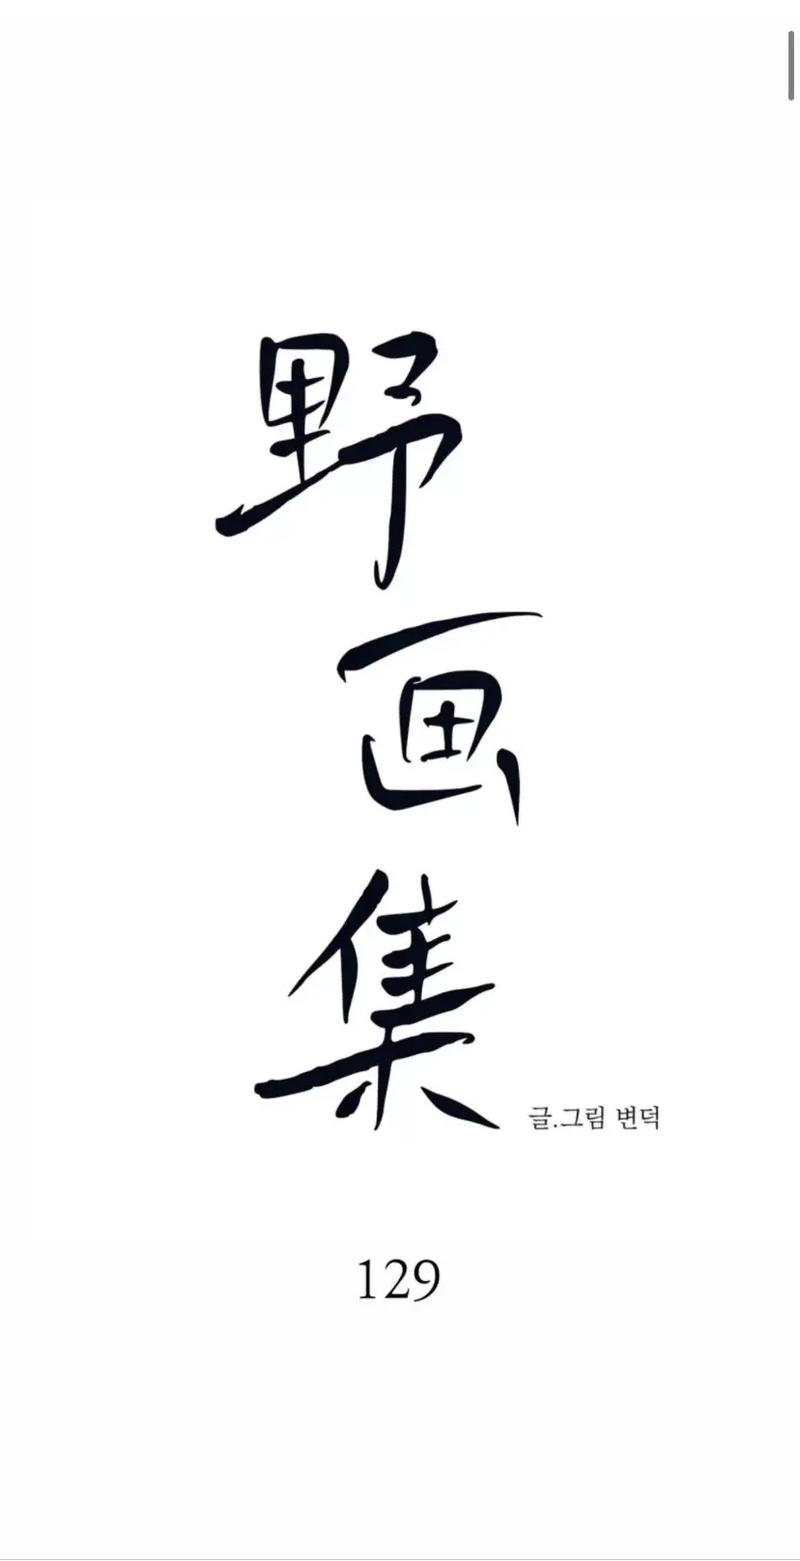 野画集
글.그림 변덕
129